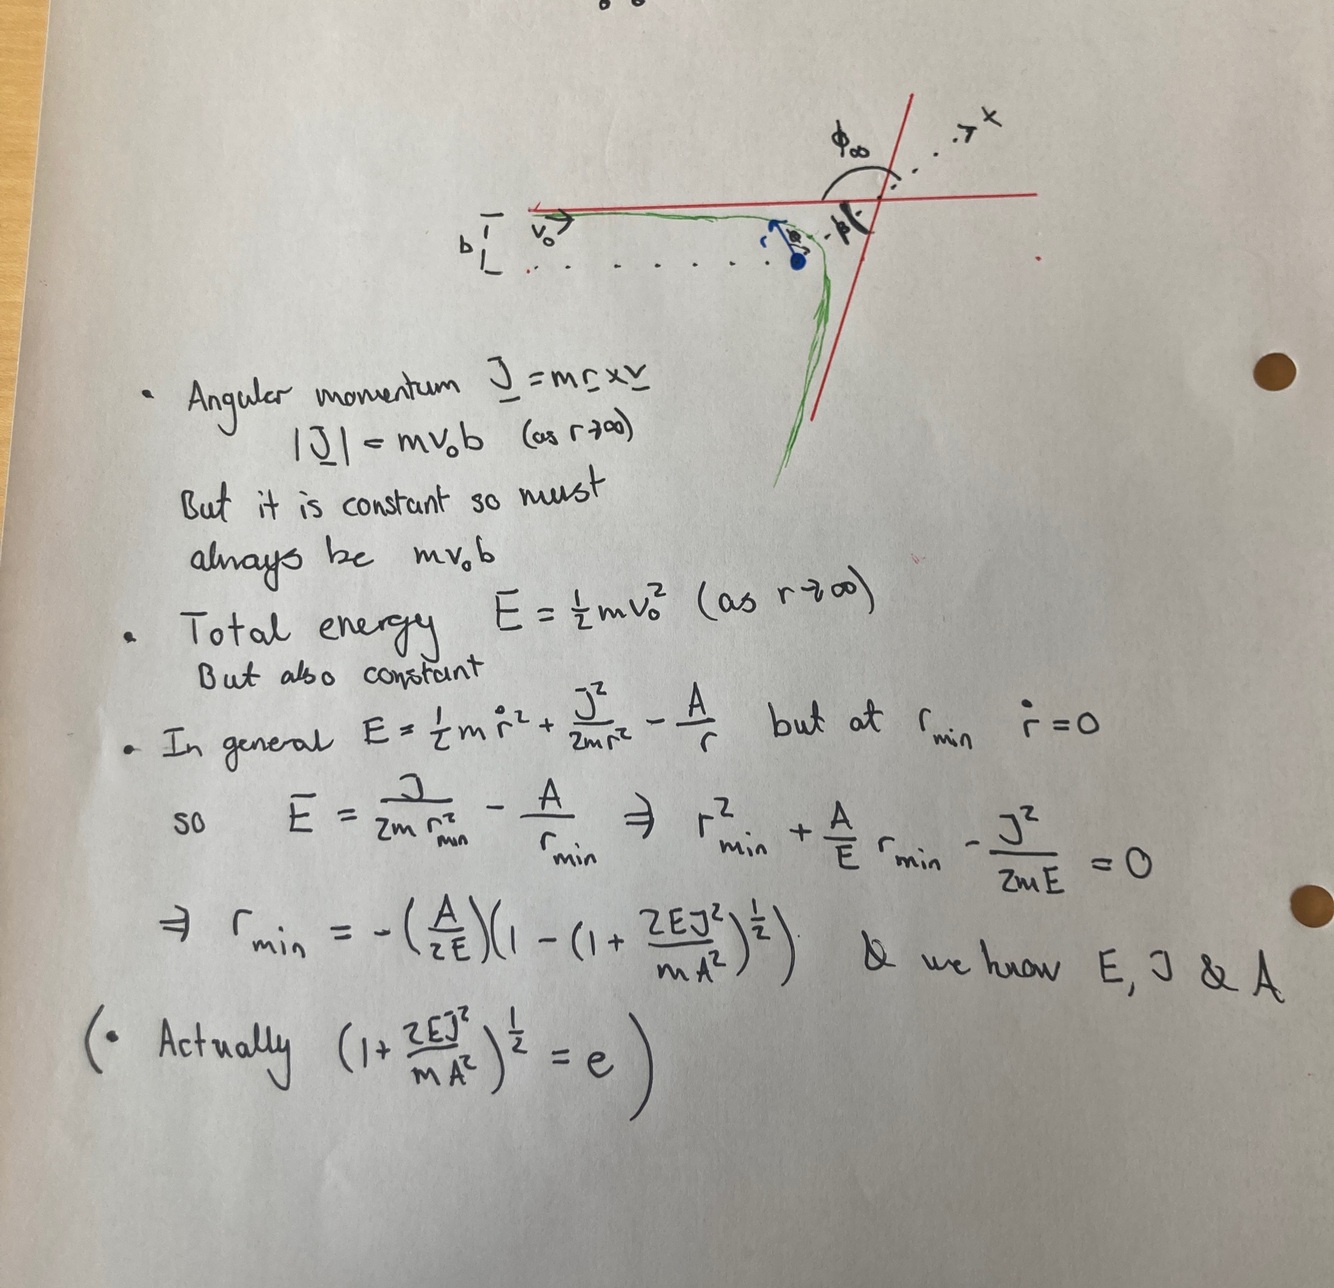 ϕ∞
x
b
v₀
r
β
• Angular momentum J = m r × v
|J| = mv₀b (as r→∞)
But it is constant so must
always be mv₀b
• Total energy E = ½mv₀² (as r→∞)
But also constant
• In general E = ½mṙ² + J²/2mr² − A/r but at r_min ṙ = 0
so E = J/2mr²_min − A/r_min ⇒ r²_min + A/E r_min − J²/2mE = 0
⇒ r_min = −(A/2E)(1 − (1 + 2EJ²/mA²)^½) & we know E, J & A
(• Actually (1 + 2EJ²/mA²)^½ = e)